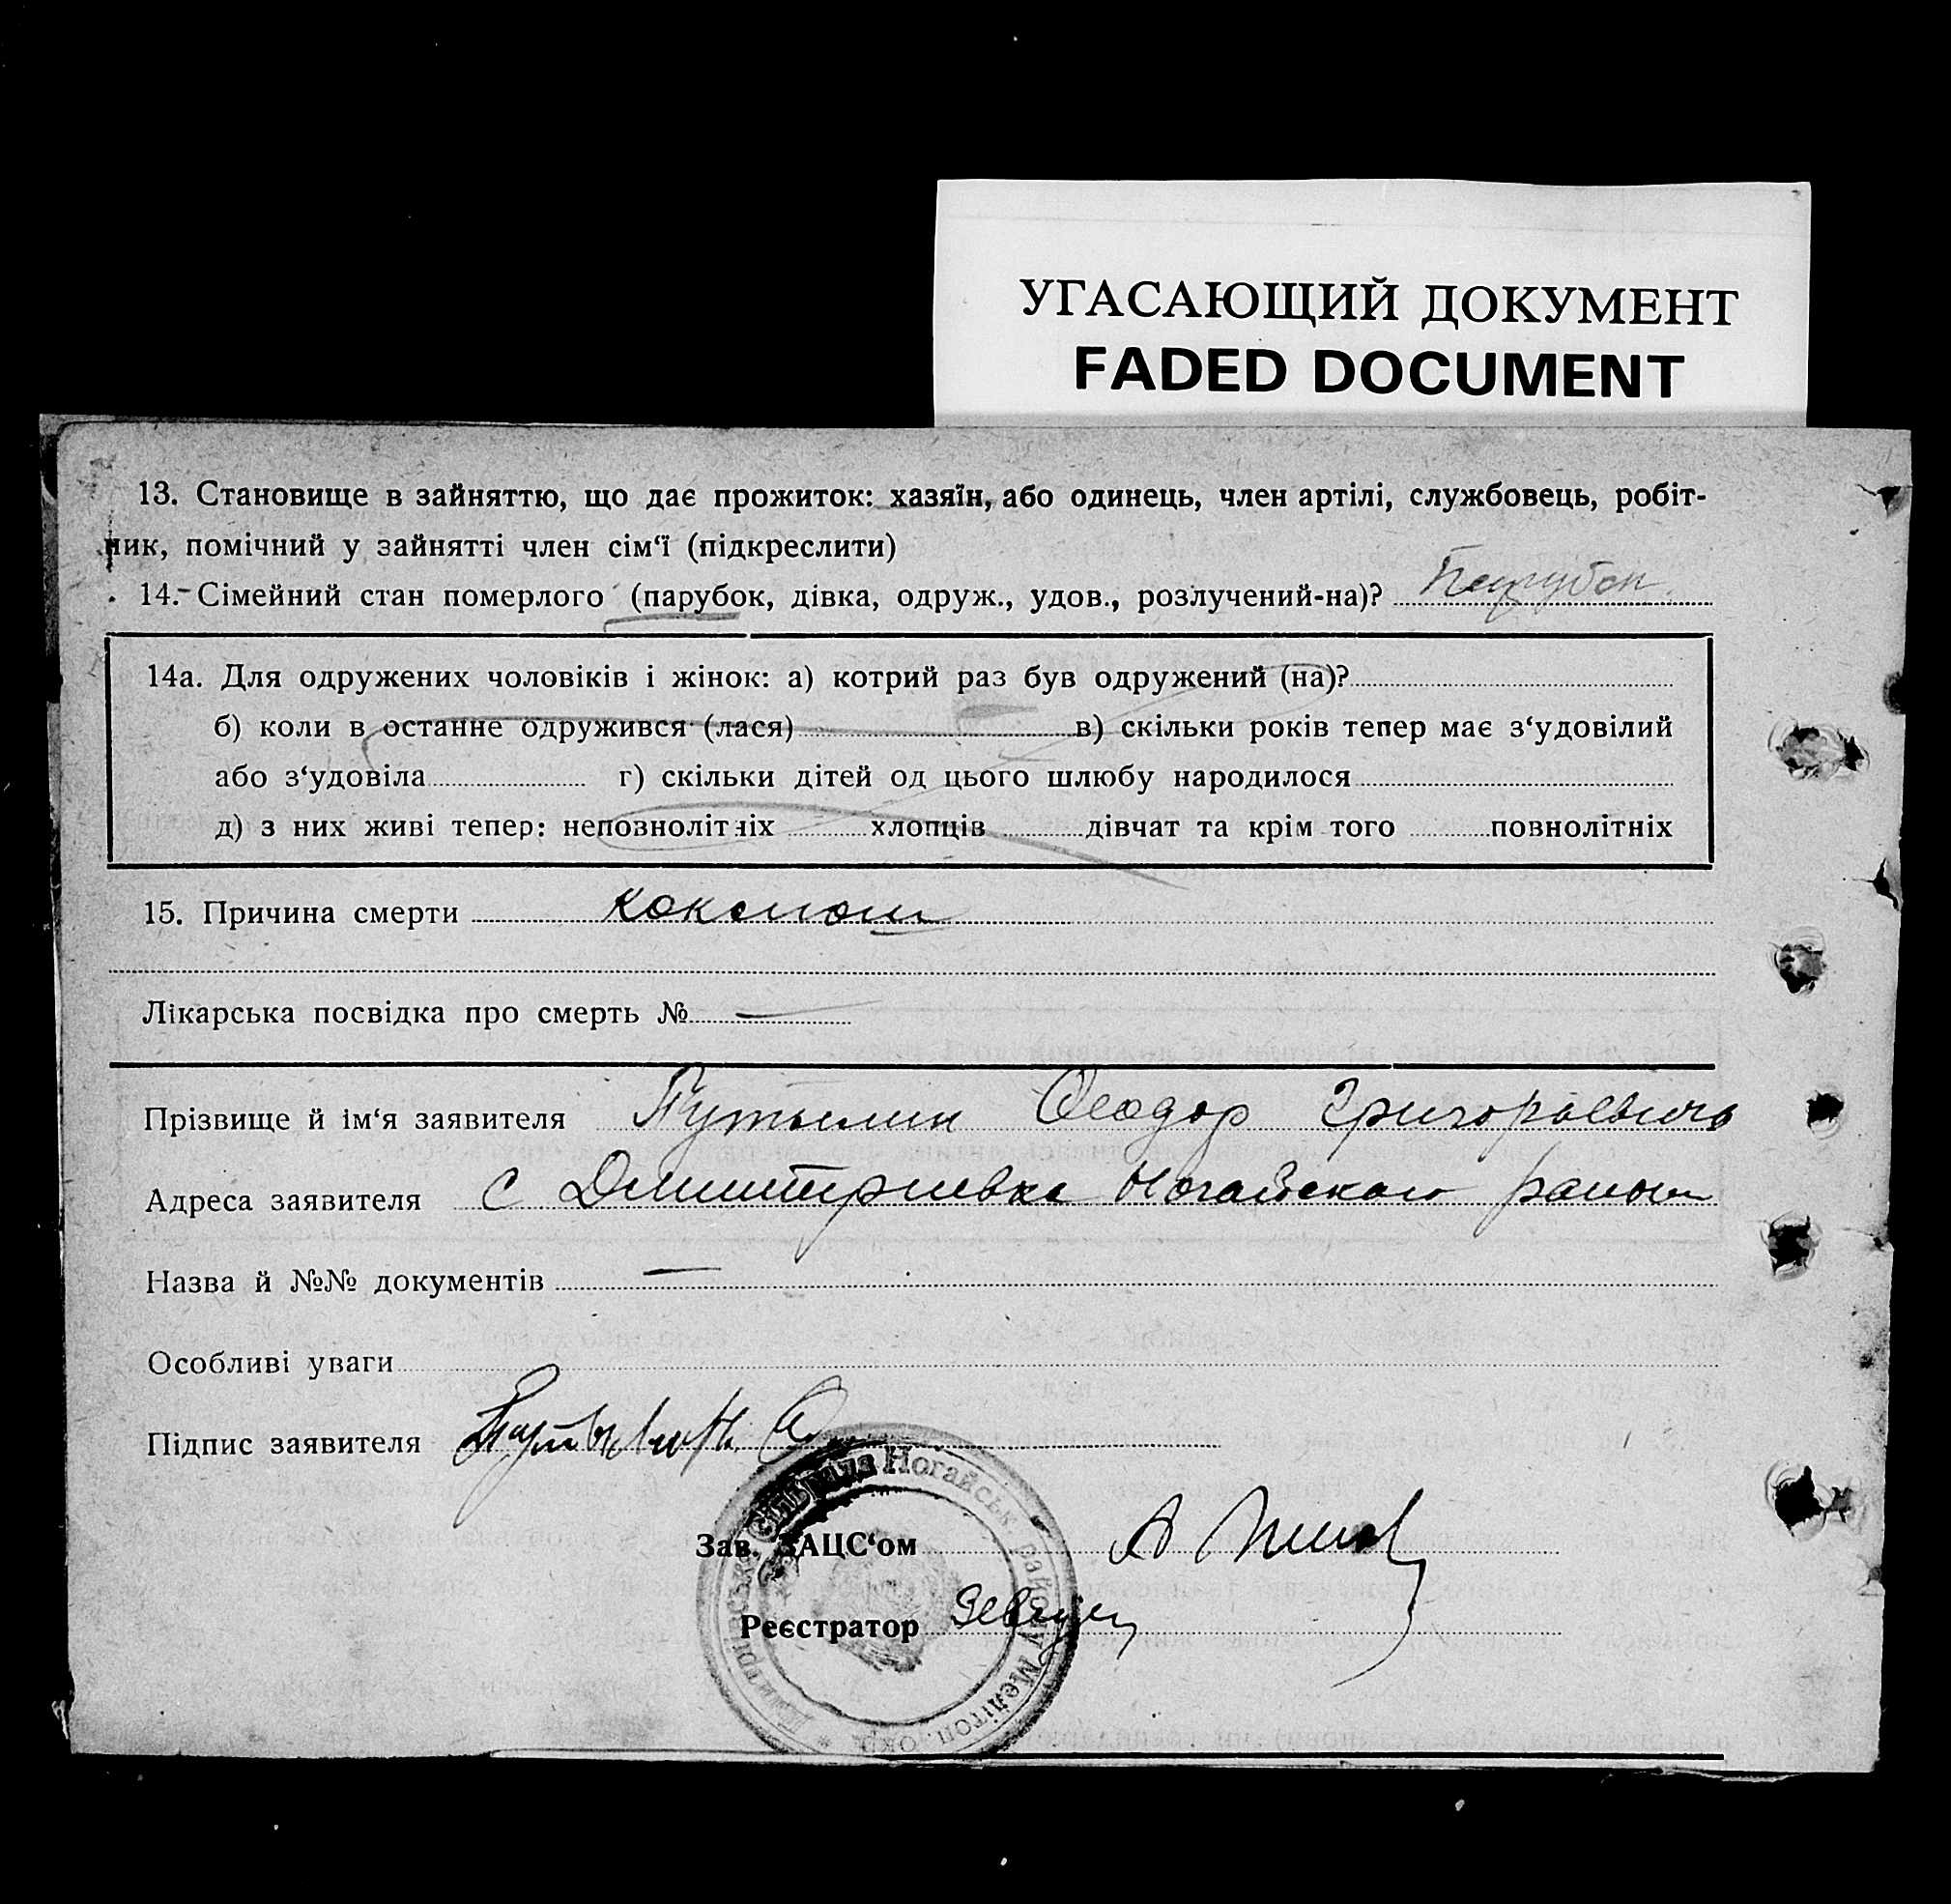 УГАСАЮЩИЙ ДОКУМЕНТ
FADED DOCUMENT
13. Становище в зайняттю, що дає прожиток: хазяїн, або одинець, член артілі, службовець, робіт-
ник, помічний у зайнятті член сім‘ї (підкреслити)
14. Сімейний стан померлого (парубок, дівка, одруж., удов., розлучений-на)? Парубок
14а. Для одружених чоловіків і жінок: а) котрий раз був одружений (на)?
б) коли в останне одружився (лася) в) скільки років тепер має з‘удовілий
або з‘удовіла г) скільки дітей од цього шлюбу народилося
д) з них живі тепер: неповнолітніх хлопців дівчат та крім того повнолітніх
15. Причина смерти коклюш
Лікарська посвідка про смерть № —
Прізвище й ім‘я заявителя Путылин Феодор Григорьевич
Адреса заявителя с Дмитриевка Ногайского района
Назва й №№ документів —
Особливі уваги
Підпис заявителя Путылин Ф
Зав. ЗАЦС‘ом
Реєстратор
Дмитрівська Сільрада Ногайськ. району Мелітоп. окр. *